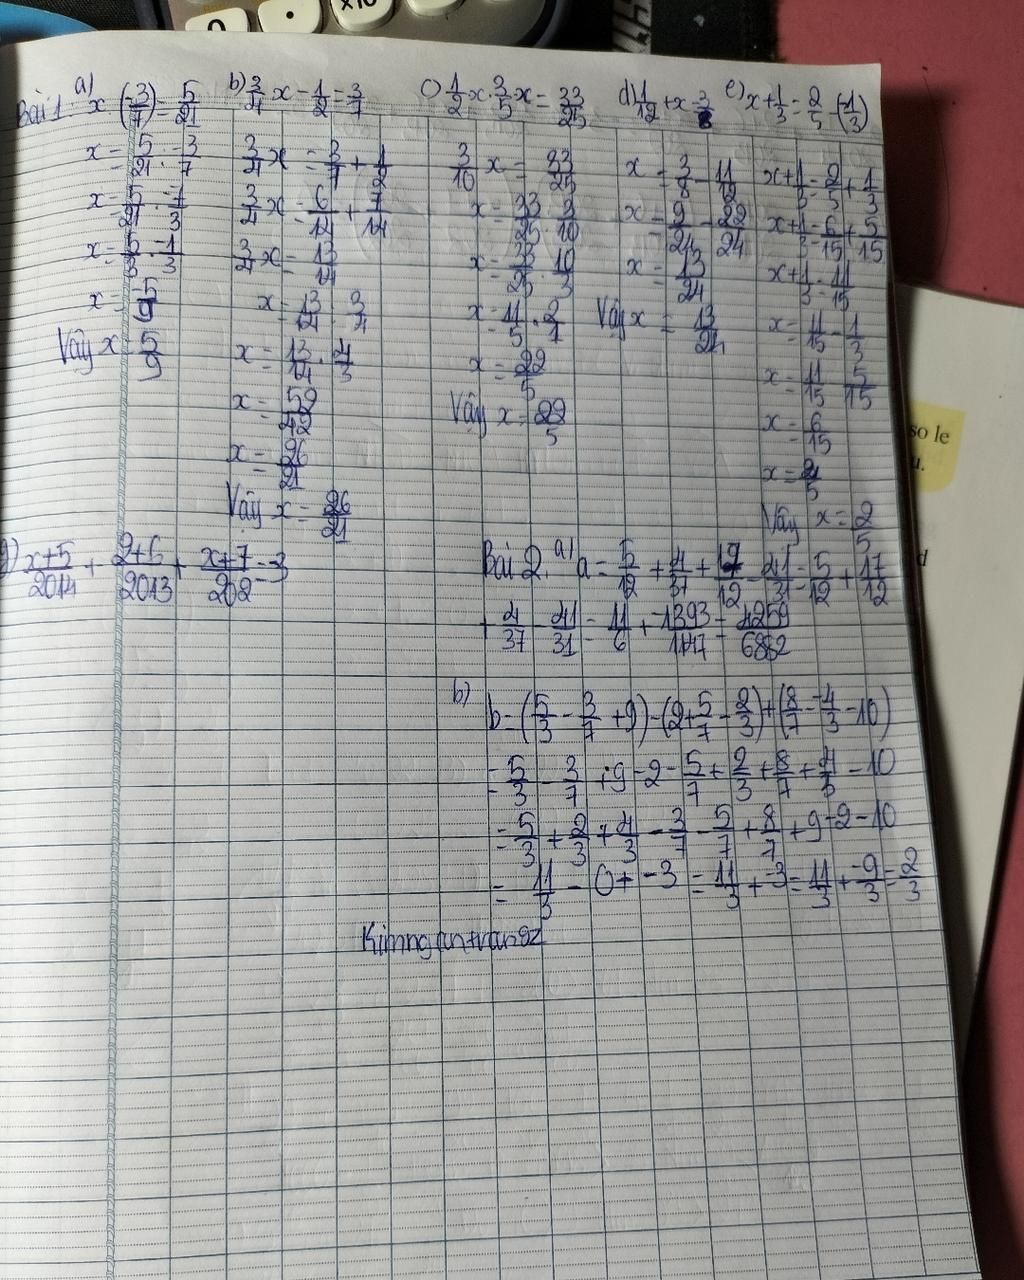 x10
0 .
Bài 1. a) x. (-3/7) = 5/21
x = 5/21 : -3/7
x = 5/21 . -7/3
x = 5/3 . -1/3
x = -5/9
Vậy x = 5/9
b) 3/4 x - 1/2 = 3/7
3/4 x = 3/7 + 1/2
3/4 x = 6/14 + 7/14
3/4 x = 13/14
x = 13/14 : 3/4
x = 13/14 . 4/3
x = 52/42
x = 26/21
Vậy x = 26/21
c) 1/2 x . 3/5 . x = 33/25
3/10 x = 33/25
x = 33/25 : 3/10
x = 33/25 . 10/3
x = 11/5 . 2/1
x = 22/5
Vậy x = 22/5
d) 1/12 + x = 3/8
x = 3/8 - 11/12
x = 9/24 - 22/24
x = 13/24
Vậy x = 13/24
e) x + 1/3 = 2/5 - (1/3)
x + 1/3 = 2/5 + 1/3
x + 1/3 = 6/15 + 5/15
x + 1/3 = 11/15
x = 11/15 - 1/3
x = 11/15 - 5/15
x = 6/15
x = 2/5
Vậy x = 2/5
g) x+5/2014 + 2+6/2013 + x+7/202 = 3
Bài 2. a) a = 5/12 + 4/37 + 17/12 - 41/31 = 5/12 + 17/12
+ 4/37 - 41/31 = 11/6 + -1393/1147 = 4259/6882
b)
b = (5/3 - 3/7 + 9) - (2 + 5/7 - 2/3) + (8/7 - -4/3 - 10)
= 5/3 - 3/7 + 9 - 2 - 5/7 + 2/3 + 8/7 + 4/3 - 10
= 5/3 + 2/3 + 4/3 - 3/7 - 5/7 + 8/7 + 9 - 2 - 10
= 11/3 - 0 + -3 = 11/3 + -3 = 11/3 + -9/3 = 2/3
Kimnganvan92
so le
u.
d